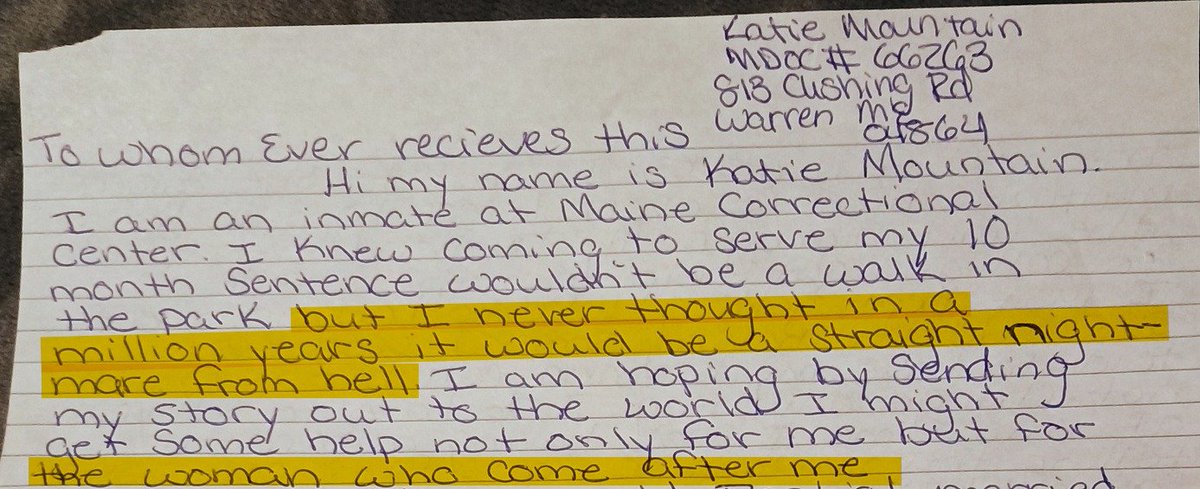 Katie Mountain
MDOC# 66263
813 Cushing Rd
Warren Me
04864
To whom Ever recieves this
Hi my name is Katie Mountain.
I am an inmate at Maine Correctional
Center. I Knew coming to serve my 10
month Sentence wouldn't be a walk in
the park but I never thought in a
million years it would be a straight night-
mare from hell. I am hoping by Sending
my story out to the world I might
get Some help not only for me but for
the woman who come after me
married